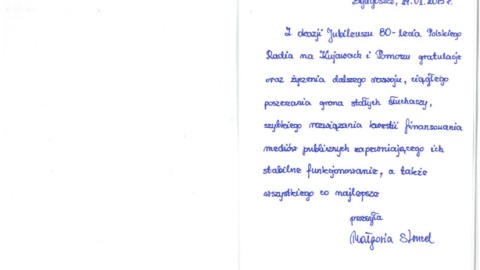 Bydgoszcz, 29.01.2015 r.
Z okazji Jubileuszu 80-lecia Polskiego
Radia na Kujawach i Pomorzu gratulacje
oraz życzenia dalszego rozwoju, ciągłego
poszerzania grona stałych słuchaczy,
szybkiego rozwiązania kwestii finansowania
mediów publicznych zapewniającego ich
stabilne funkcjonowanie, a także
wszystkiego co najlepsze
przesyła
Małgorzata